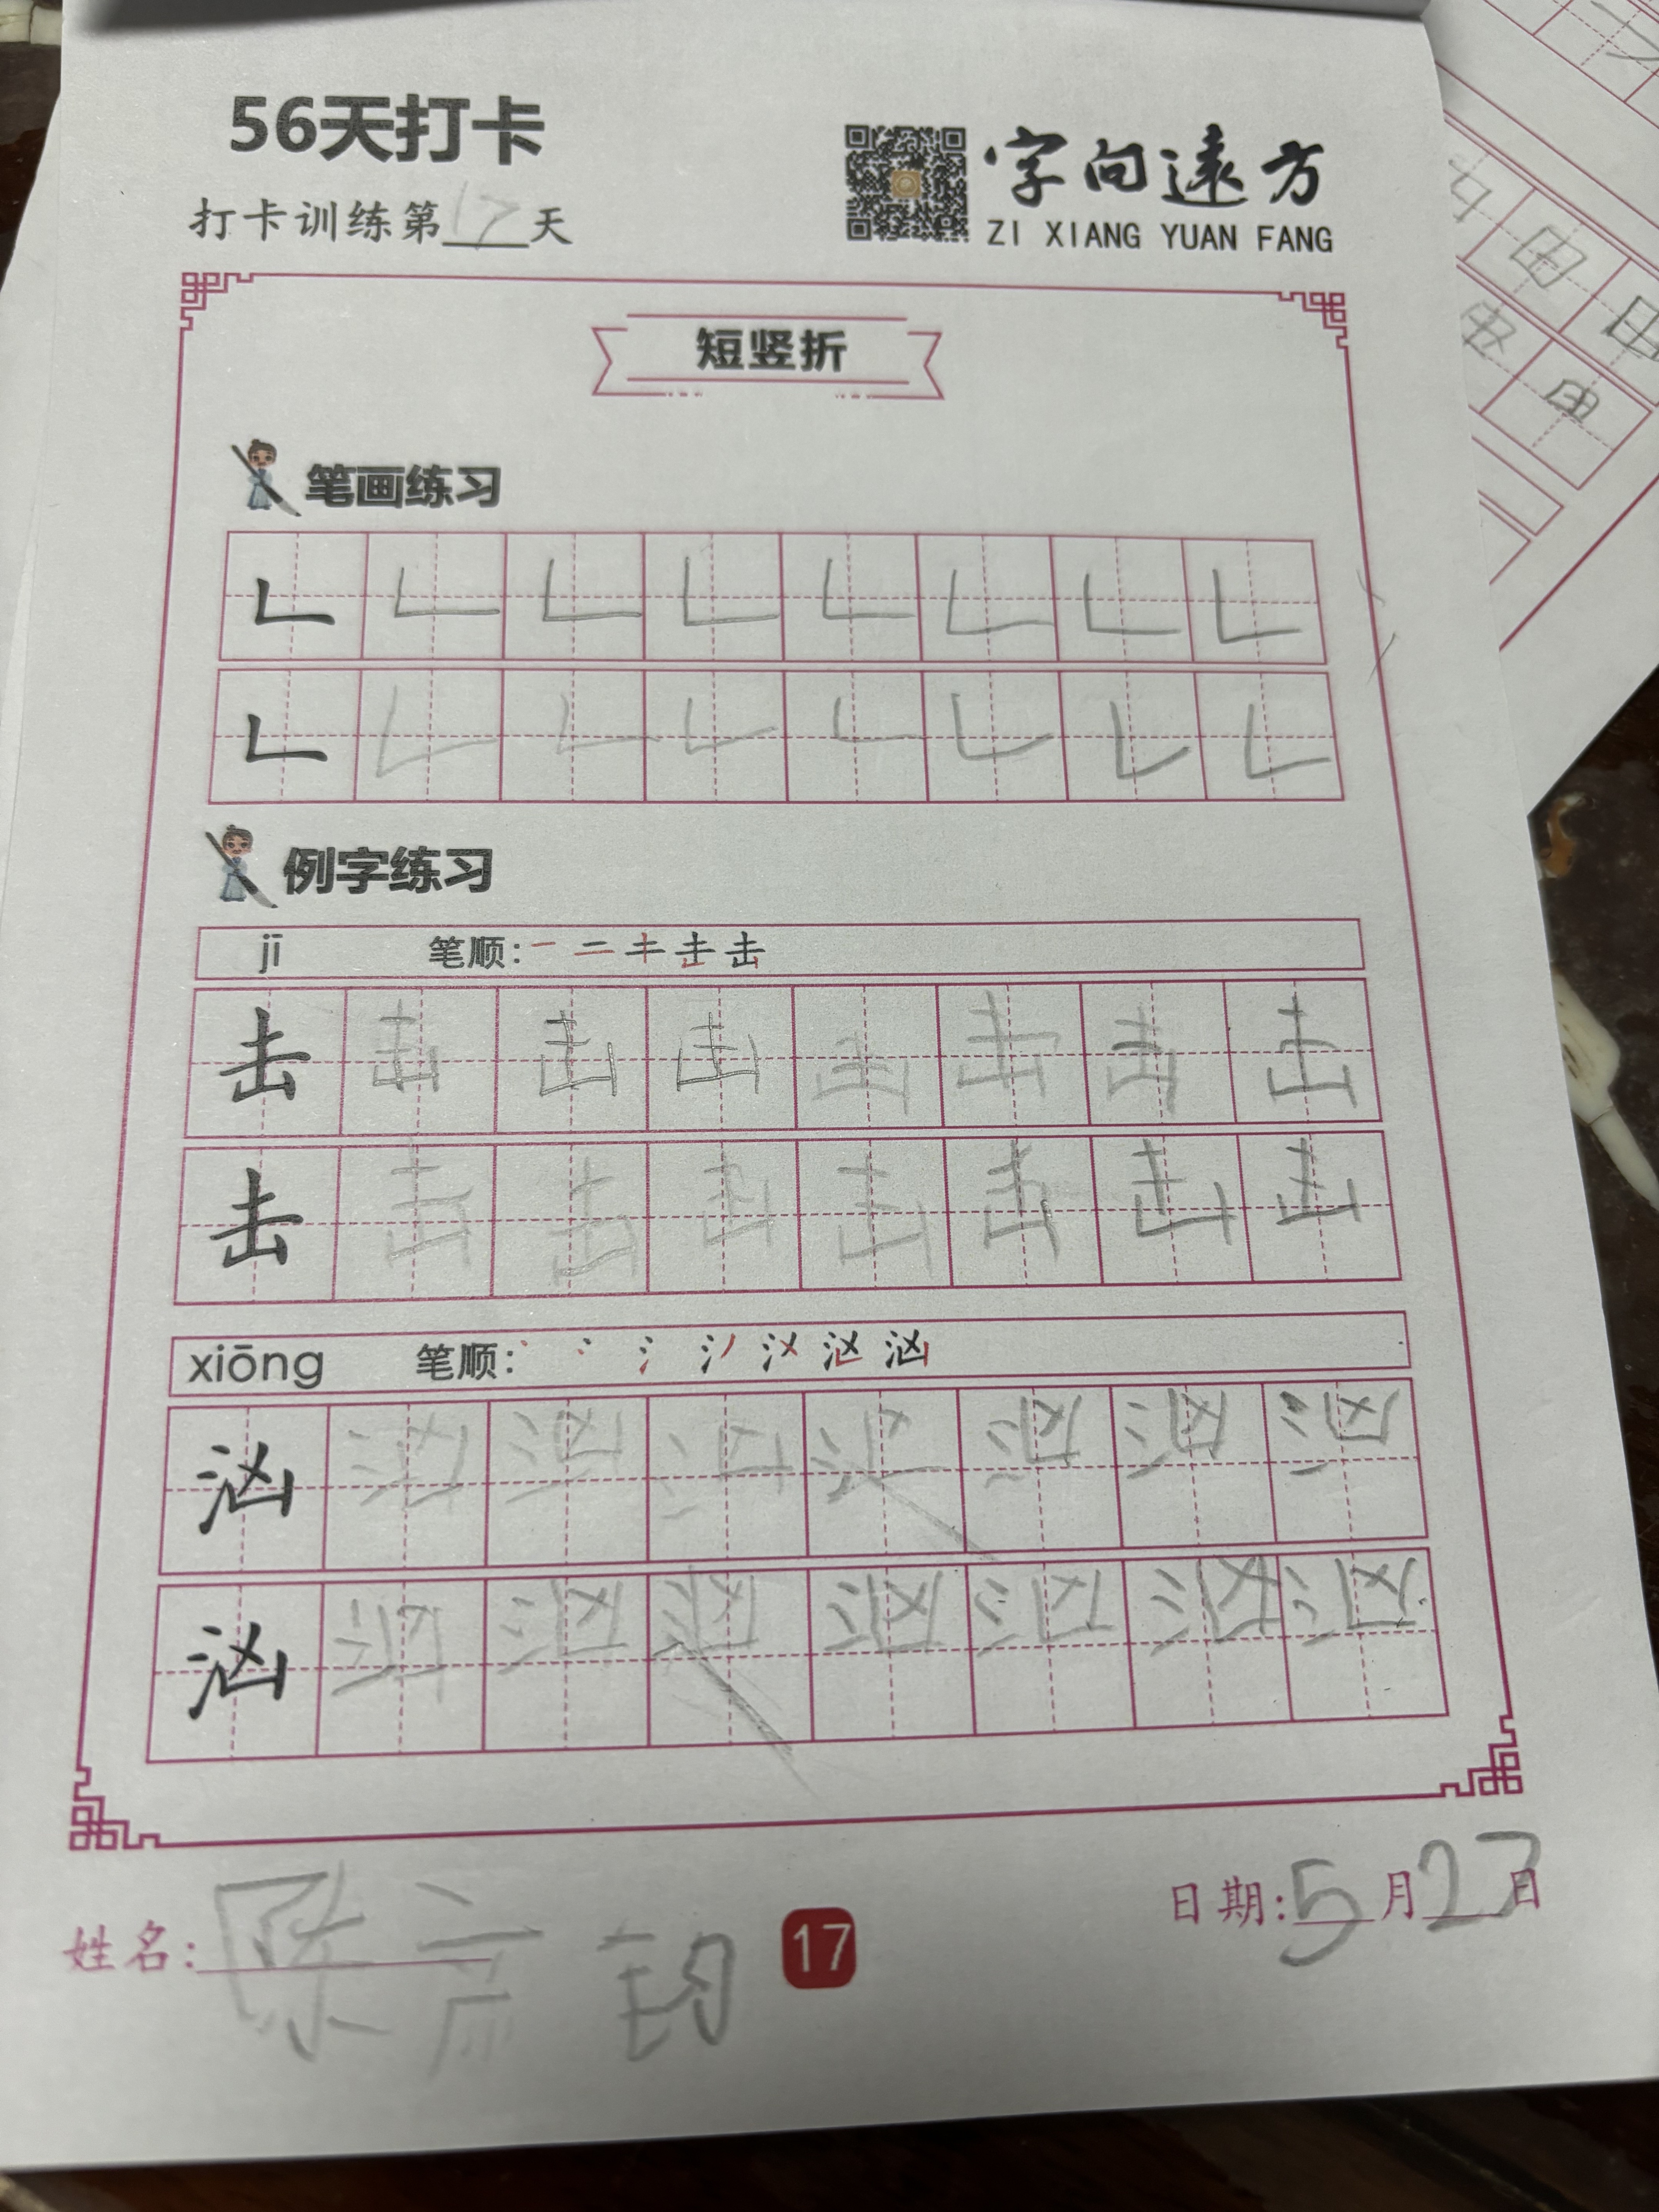 56天打卡
打卡训练第17天
字向遠方
ZI XIANG YUAN FANG
短竖折
笔画练习
𠃊 𠃊 𠃊 𠃊 𠃊 𠃊 𠃊 𠃊
𠃊 𠃊 𠃊 𠃊 𠃊 𠃊 𠃊 𠃊
例字练习
jī 笔顺: 一 二 キ 击 击
击 击 击 击 击 击 击 击
击 击 击 击 击 击 击 击
xiōng 笔顺: 汹
汹 汹 汹 汹 汹 汹 汹 汹
汹 汹 汹 汹 汹 汹 汹 汹
姓名: 陈彦钧
17
日期: 5月27日